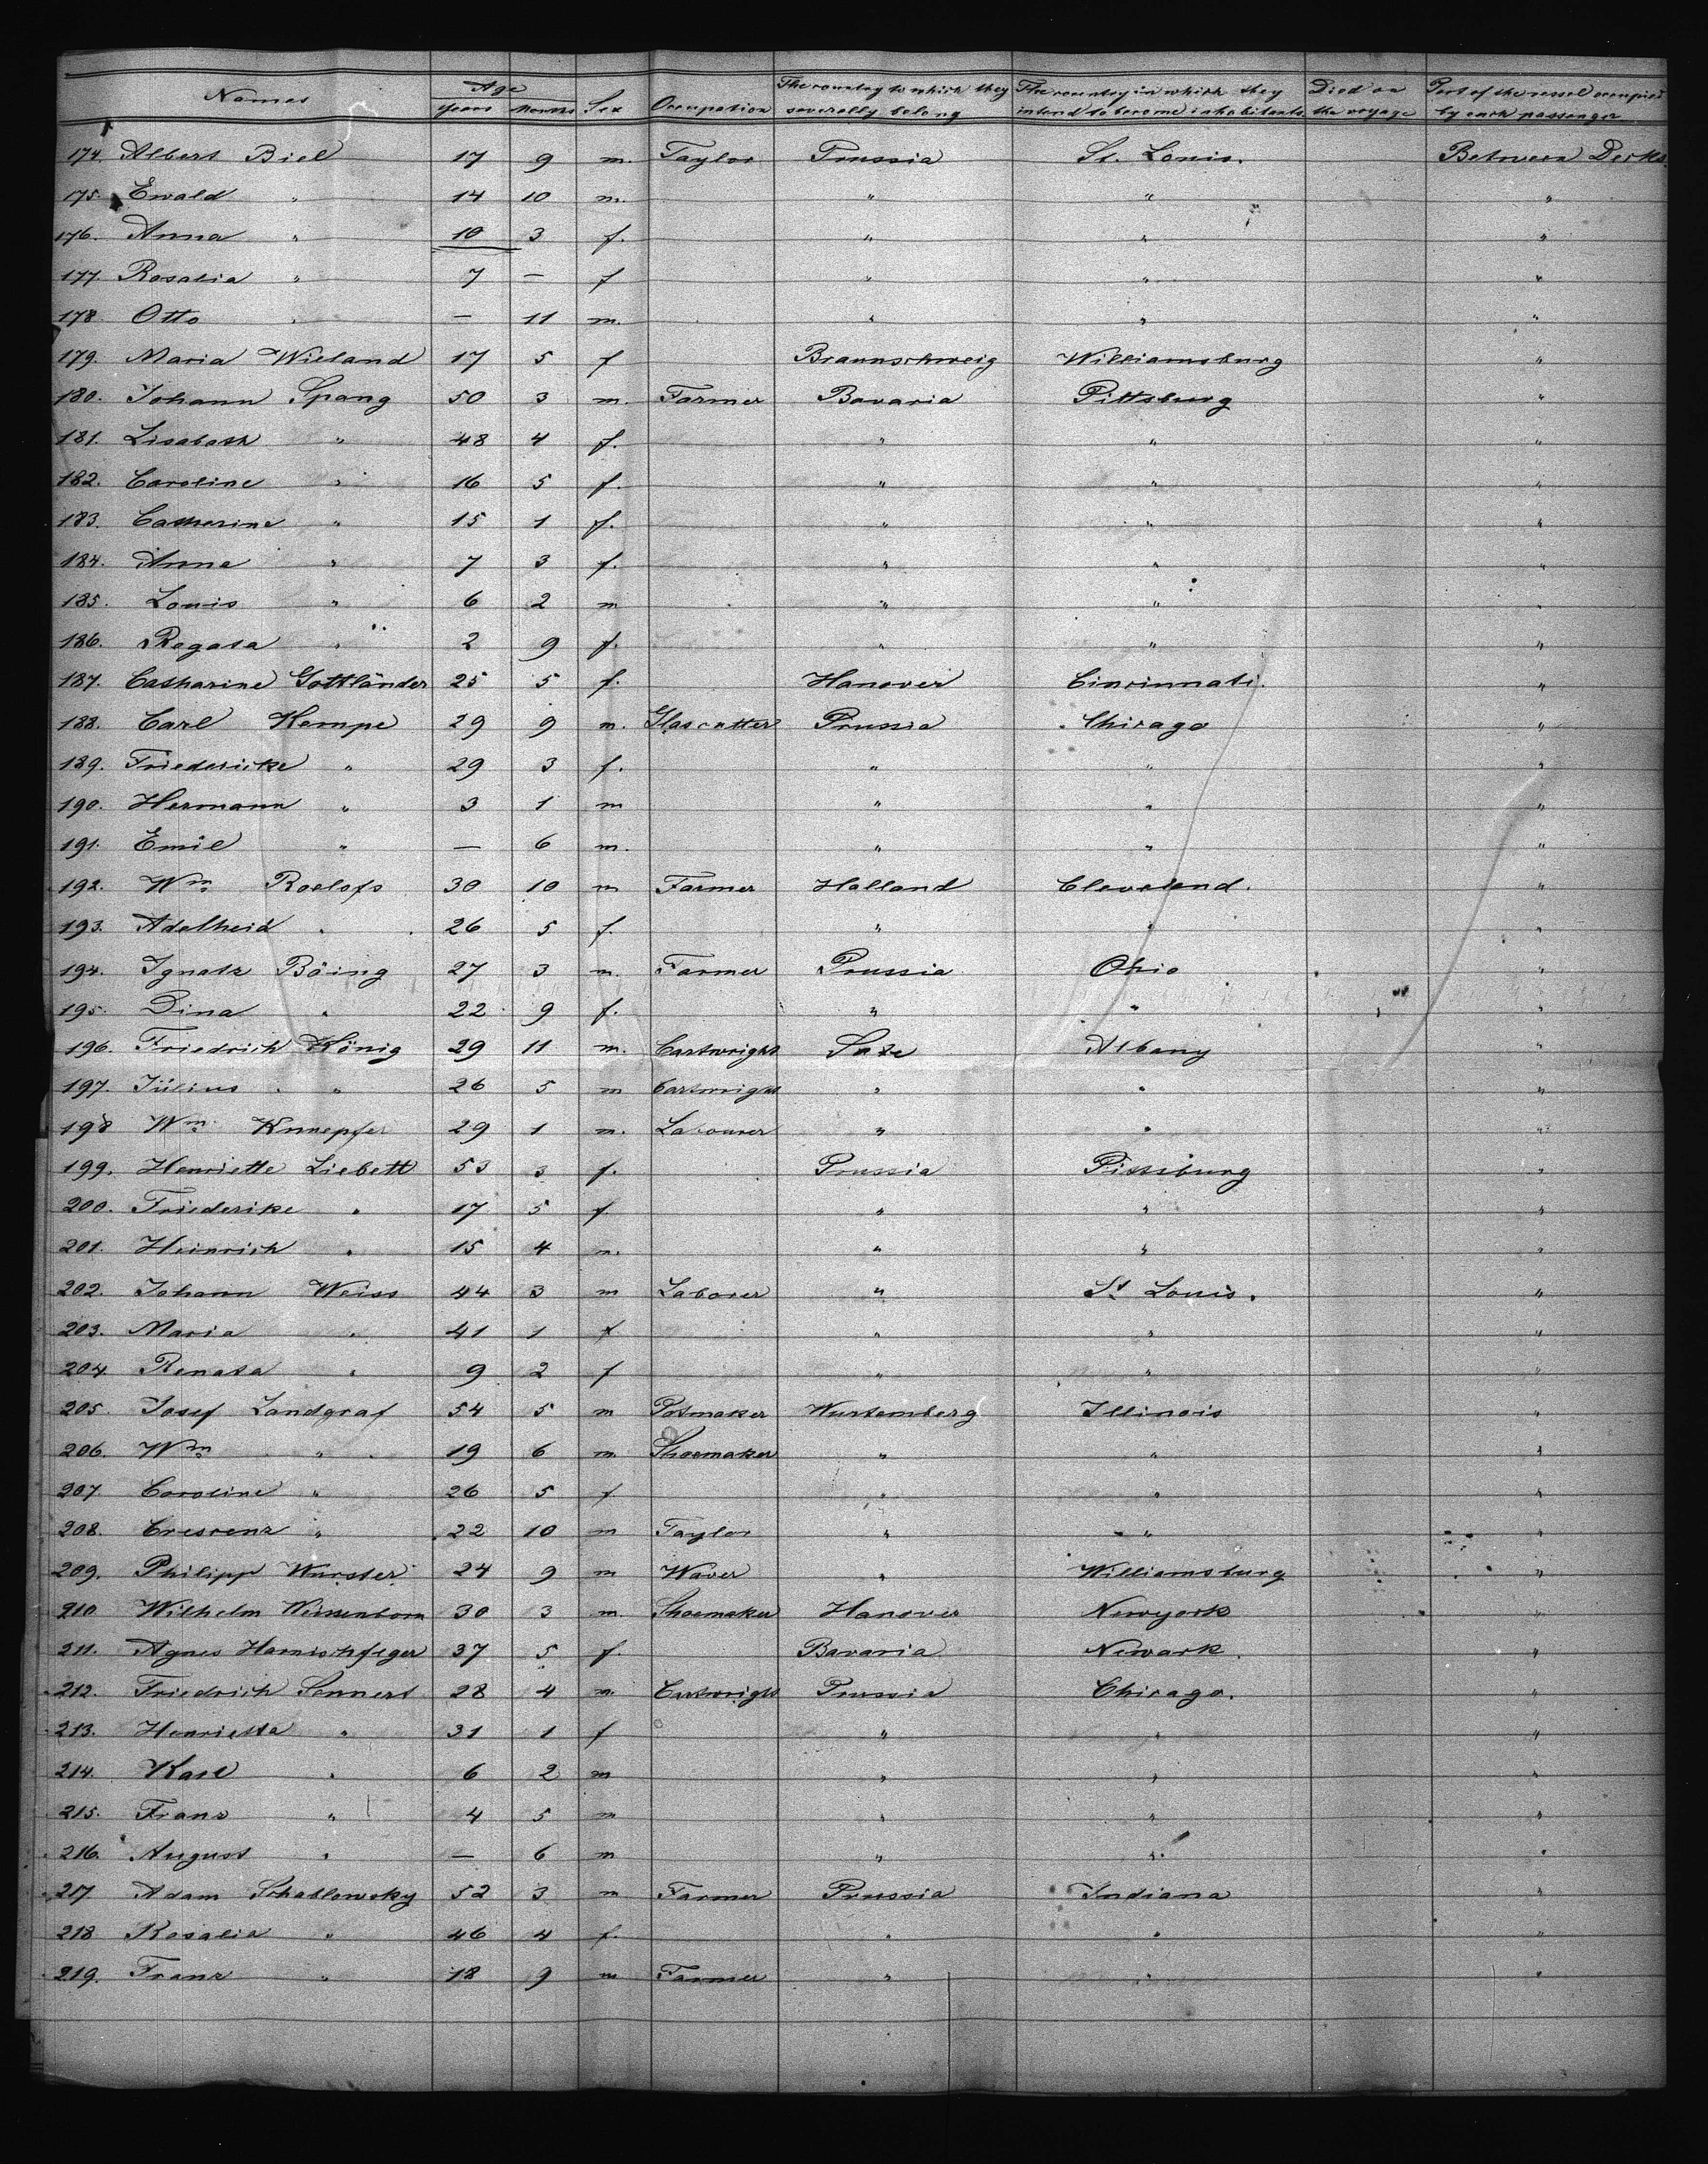 Names Age Sex Occupation The country to which they The country in which they Died on Part of the vessel occupied
years Months severally belong intend to become inhabitants the voyage by each passenger
174. Albert Biel 17 9 m. Taylor Prussia St. Louis. Between Decks
175. Ewald " 14 10 m. " " "
176. Anna " 10 3 f. " " "
177. Rosalia " 7 — f " " "
178. Otto " — 11 m. " " "
179. Maria Wieland 17 5 f Braunschweig Williamsburg "
180. Johann Spang 50 3 m. Farmer Bavaria Pittsburg "
181. Lisabeth " 48 4 f. " " "
182. Caroline " 16 5 f. " " "
183. Catherine " 15 1 f. " " "
184. Anna " 7 3 f. " " "
185. Louis " 6 2 m " " "
186. Regata " 2 9 f. " " "
187. Catharine Gottländer 25 5 f. Hanover Cincinnati. "
188. Carl Kempe 29 9 m. Glascutter Prussia Chicago "
189. Friedericke " 29 3 f. " " "
190. Hermann " 3 1 m " " "
191. Emil " — 6 m. " " "
192. Wm Roelofs 30 10 m Farmer Holland Cleveland. "
193. Adelheid " 26 5 f. " " "
194. Ignatz Böing 27 3 m. Farmer Prussia Ohio "
195. Dina " 22 9 f. " " "
196. Friedrich König 29 11 m. Cartwright Albany "
197. Julius " 26 5 m Cartwright " " "
198 Wm Knnepfel 29 1 m. Labourer " " "
199. Henriette Liebett 53 3 f. Prussia Pittsburg "
200. Friederike " 17 5 f. " " "
201. Heinrich " 15 4 m. " " "
202. Johann Weiss 44 3 m Laborer " St Louis. "
203. Maria " 41 1 f " " "
204. Renata " 9 2 f " " "
205. Josef Landgraf 54 5 m Potmaker Wurtemberg Illinois "
206. Wm " 19 6 m Shoemaker " " "
207. Caroline " 26 5 f " " "
208. Crescenz " 22 10 m Taylor " " "
209. Philipp Wurster 24 9 m Waver " Williamsburg "
210 Wilhelm Wissenborn 30 3 m. Shoemaker Hanover Newyork "
211. Agnes Harnischfeger 37 5 f. Bavaria Newark. "
212. Friedrich Sennert 28 4 m. Cartwright Prussia Chicago. "
213. Henrietta " 31 1 f " " "
214. Karl " 6 2 m " " "
215. Franz " 4 5 m " " "
216. August " — 6 m " " "
217 Adam Schablowsky 52 3 m Farmer Prussia Indiana "
218 Rosalia " 46 4 f. " " "
219. Franz " 18 9 m Farmer " " "